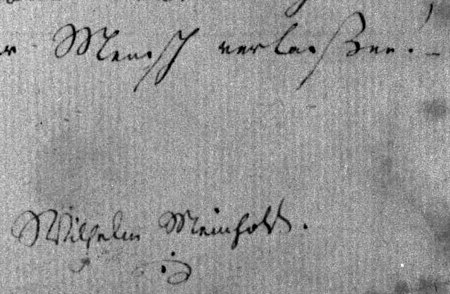 r Mensch verlaßen! –
Wilhelm Meinhold.